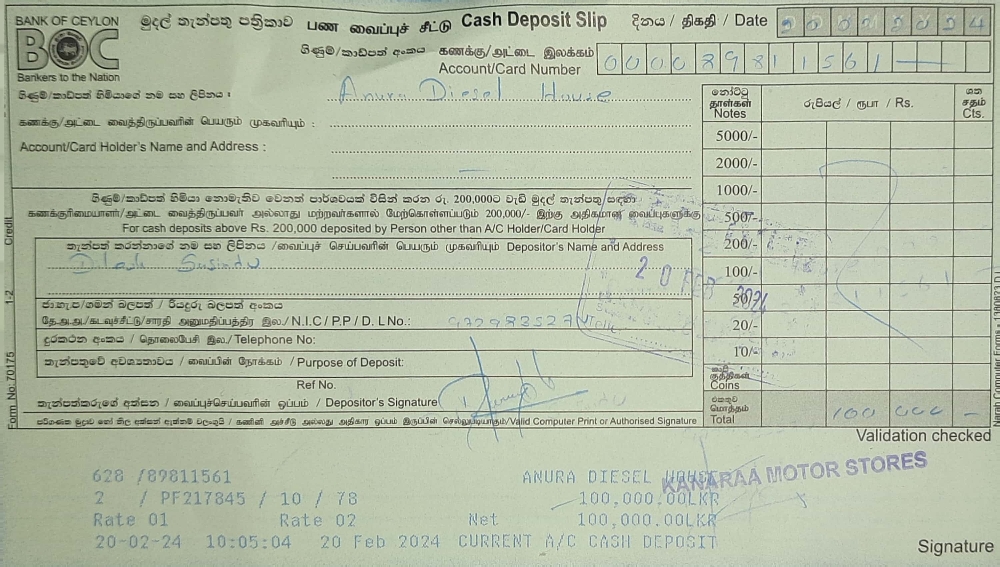 BANK OF CEYLON
BOC
Bankers to the Nation
මුදල් තැන්පතු පත්‍රිකාව பண வைப்புச் சீட்டு Cash Deposit Slip
දිනය / திகதி / Date 20022024
ගිණුම්/කාඩ්පත් අංකය கணக்கு/அட்டை இலக்கம்
Account/Card Number 000089811561
ගිණුම්/කාඩ්පත් හිමියාගේ නම සහ ලිපිනය :
Anura Diesel House
கணக்கு/அட்டை வைத்திருப்பவரின் பெயரும் முகவரியும் :
Account/Card Holder's Name and Address :
ගිණුම්/කාඩ්පත් හිමියා නොමැතිව වෙනත් පාර්ශවයක් විසින් කරන රු. 200,000ට වැඩි මුදල් තැන්පතු සඳහා
கணக்குரிமையாளர்/அட்டை வைத்திருப்பவர் அல்லாது மற்றவர்களால் மேற்கொள்ளப்படும் 200,000/- இற்கு அதிகமான வைப்புகளுக்கு
For cash deposits above Rs. 200,000 deposited by Person other than A/C Holder/Card Holder
තැන්පත් කරන්නාගේ නම සහ ලිපිනය /வைப்புச் செய்பவரின் பெயரும் முகவரியும் Depositor's Name and Address
Susindu
ජා.හැ.ප/ගමන් බලපත් / රියදුරු බලපත් අංකය
தே.அ.அ./கடவுச்சீட்டு/சாரதி அனுமதிப்பத்திர இல./ N.I.C / P.P / D. L No.:
දුරකථන අංකය / தொலைபேசி இல./ Telephone No:
තැන්පතුවේ අවශ්‍යතාවය / வைப்பின் நோக்கம் / Purpose of Deposit:
Ref No.
තැන්පත්කරුගේ අත්සන / வைப்புச்செய்பவரின் ஒப்பம் / Depositor's Signature
/Valid Computer Print or Authorised Signature
නෝට්ටු
தாள்கள்
Notes
රුපියල් / ரூபா / Rs.
ශත
சதம்
Cts.
5000/-
2000/-
1000/-
500/-
200/-
100/-
50/-
20/-
10/-
කාසි
குத்திகள்
Coins
එකතුව
மொத்தம்
Total
100 000 -
20 FEB 2024
Form No: 70175
1-2
Credit
Validation checked
628 /89811561 ANURA DIESEL HOUSE
KANARAA MOTOR STORES
2 / PF217845 / 10 / 78 100,000.00LKR
Rate 01 Rate 02 Net 100,000.00LKR
20-02-24 10:05:04 20 Feb 2024 CURRENT A/C CASH DEPOSIT
Signature